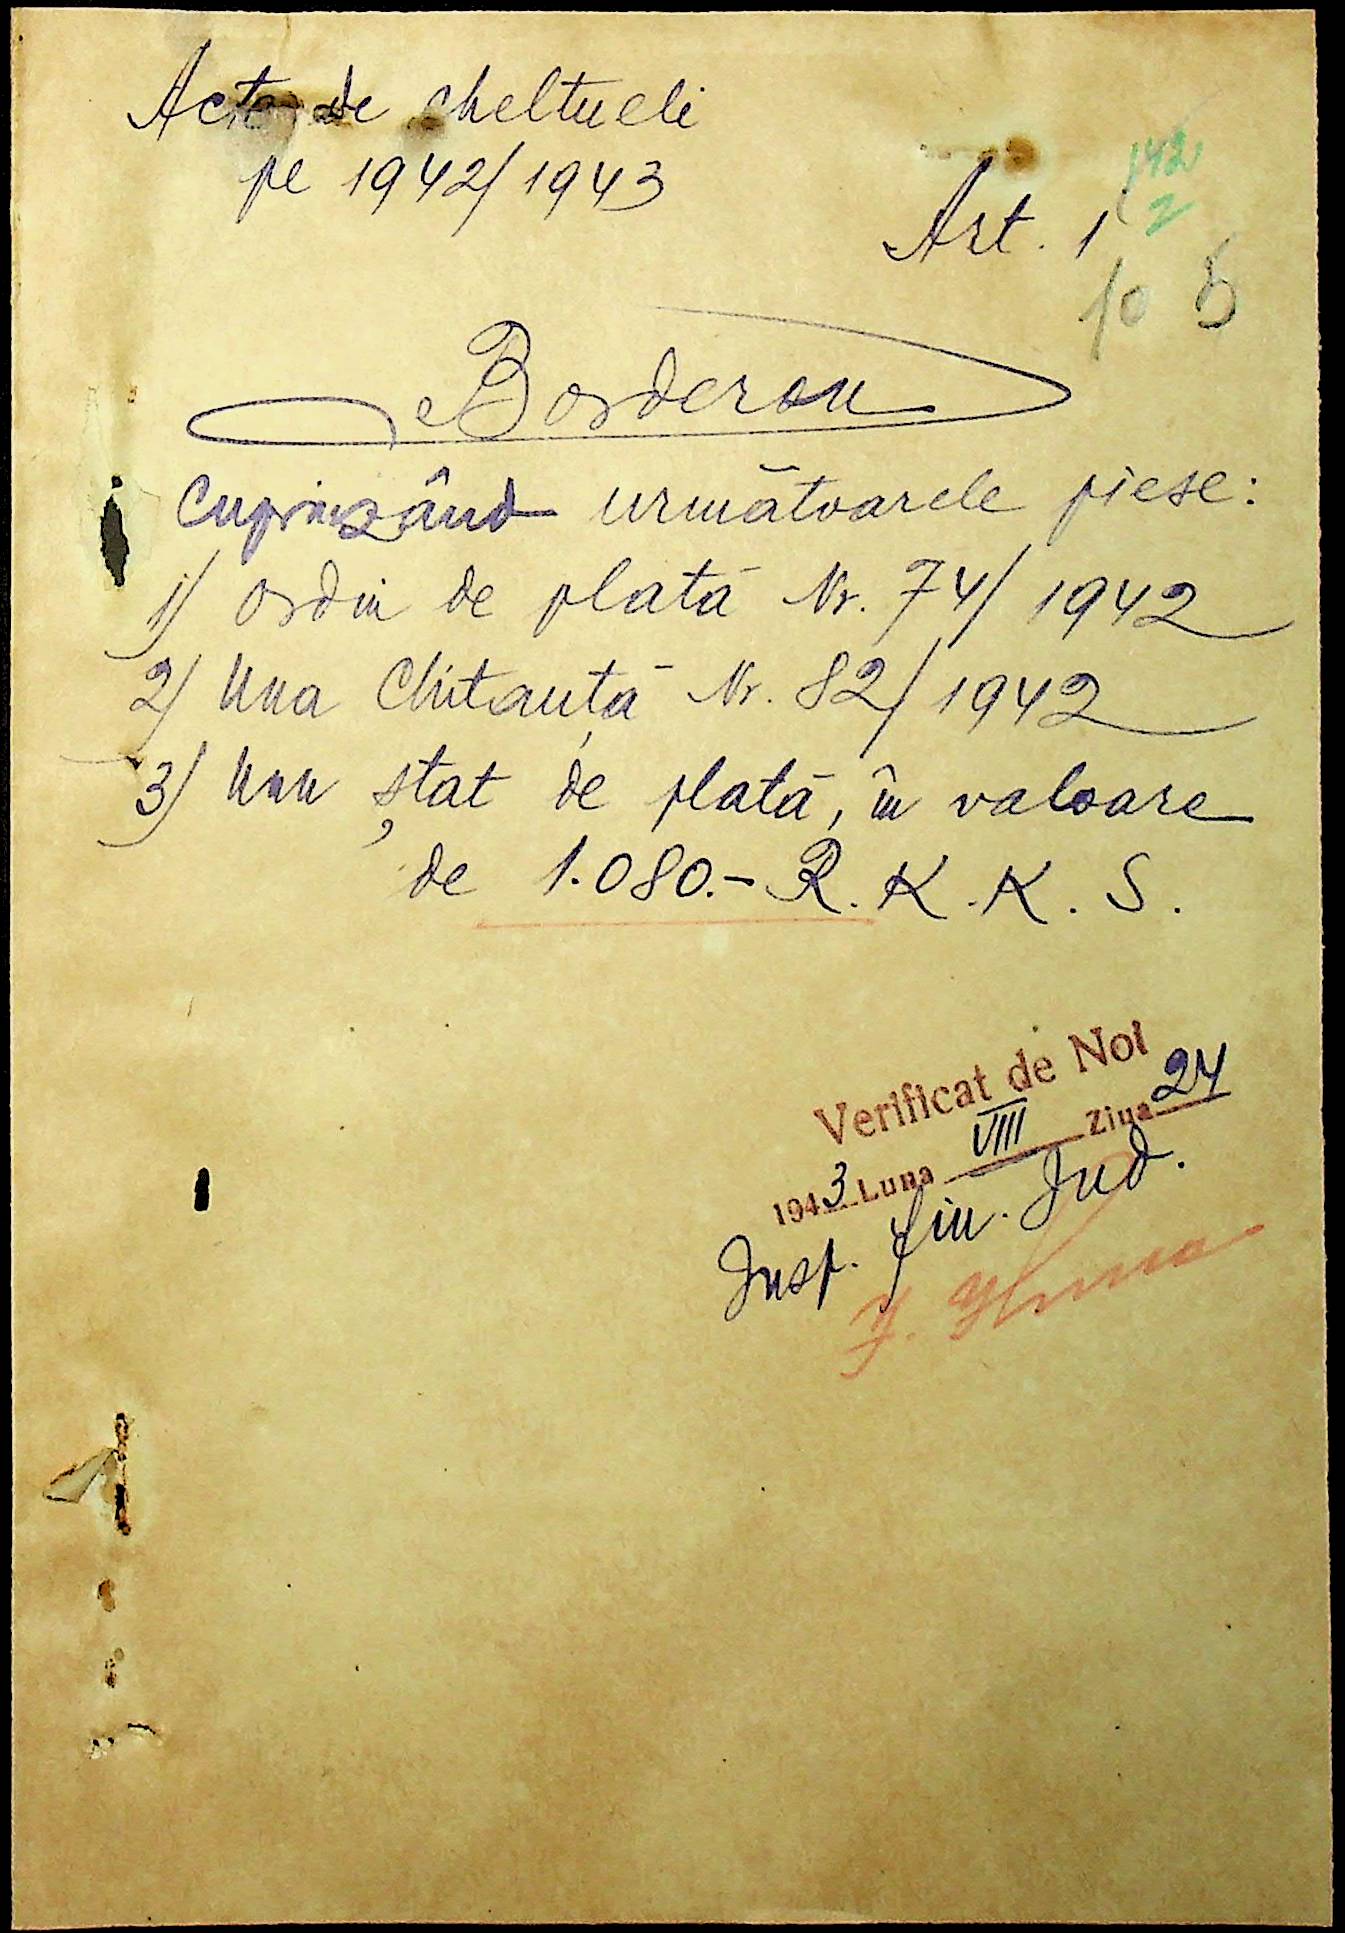 Acte de cheltueli
pe 1942/1943
142
2
Art. 1
10 5
Borderou
Cuprinzând următoarele piese:
1) Ordin de plată Nr. 74/1942
2) Una Chitanță Nr. 82/1942
3) Unu ștat de plată, în valoare
de 1.080.- R. K. K. S.
Verificat de Noi
1943 Luna VIII Ziua 24
Insp. fin. Jud.